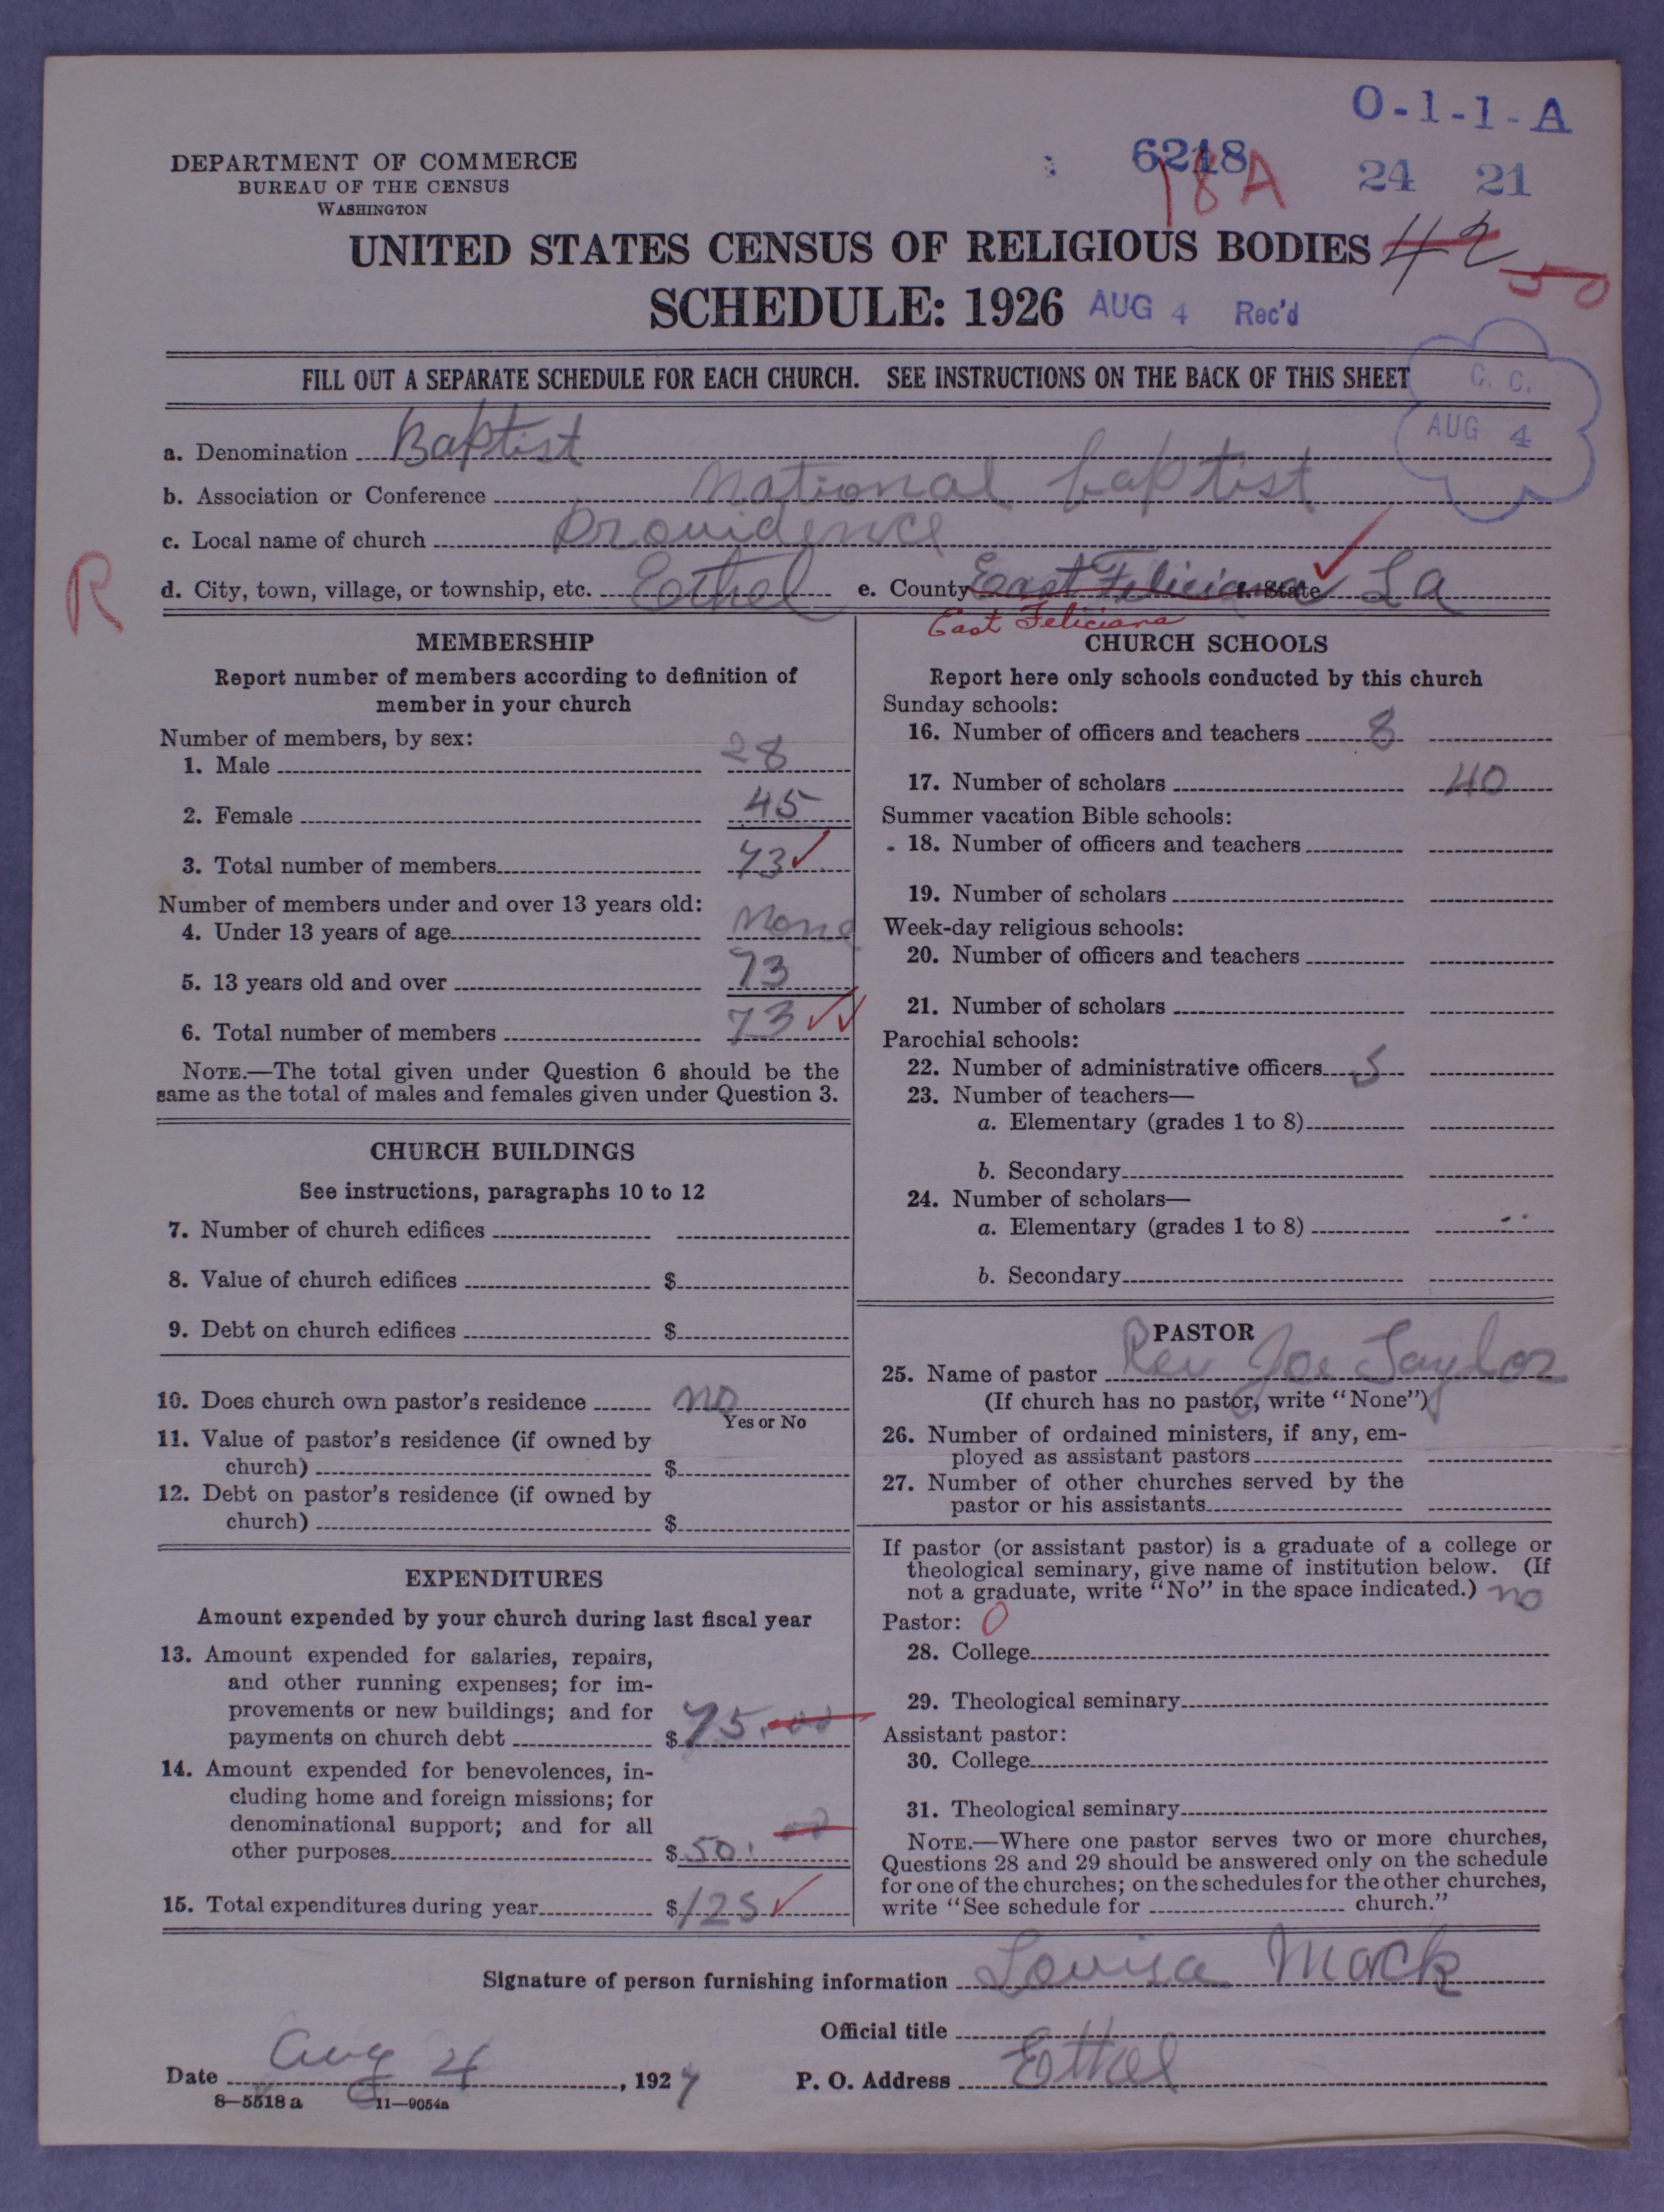 O-1-1-A
DEPARTMENT OF COMMERCE
BUREAU OF THE CENSUS
WASHINGTON
6218
18A
24 21
UNITED STATES CENSUS OF RELIGIOUS BODIES 42
50
SCHEDULE: 1926 AUG 4 Rec'd
FILL OUT A SEPARATE SCHEDULE FOR EACH CHURCH. SEE INSTRUCTIONS ON THE BACK OF THIS SHEET
C. C.
AUG 4
a. Denomination Baptist
b. Association or Conference National baptist
c. Local name of church Providence
R
d. City, town, village, or township, etc. Ethel e. County East Feliciana f. State La
East Feliciana
MEMBERSHIP
Report number of members according to definition of
member in your church
Number of members, by sex:
1. Male 28
2. Female 45
3. Total number of members 73 ✓
Number of members under and over 13 years old:
4. Under 13 years of age None
5. 13 years old and over 73
6. Total number of members 73 ✓✓
NOTE.—The total given under Question 6 should be the
same as the total of males and females given under Question 3.
CHURCH BUILDINGS
See instructions, paragraphs 10 to 12
7. Number of church edifices
8. Value of church edifices $
9. Debt on church edifices $
10. Does church own pastor's residence no
Yes or No
11. Value of pastor's residence (if owned by
church) $
12. Debt on pastor's residence (if owned by
church) $
EXPENDITURES
Amount expended by your church during last fiscal year
13. Amount expended for salaries, repairs,
and other running expenses; for im-
provements or new buildings; and for
payments on church debt $ 75.00
14. Amount expended for benevolences, in-
cluding home and foreign missions; for
denominational support; and for all
other purposes $ 50. 00
15. Total expenditures during year $ 125 ✓
CHURCH SCHOOLS
Report here only schools conducted by this church
Sunday schools:
16. Number of officers and teachers 8
17. Number of scholars 40
Summer vacation Bible schools:
18. Number of officers and teachers
19. Number of scholars
Week-day religious schools:
20. Number of officers and teachers
21. Number of scholars
Parochial schools:
22. Number of administrative officers 5
23. Number of teachers—
a. Elementary (grades 1 to 8)
b. Secondary
24. Number of scholars—
a. Elementary (grades 1 to 8)
b. Secondary
PASTOR
25. Name of pastor Rev Joe Taylor
(If church has no pastor, write "None")
26. Number of ordained ministers, if any, em-
ployed as assistant pastors
27. Number of other churches served by the
pastor or his assistants
If pastor (or assistant pastor) is a graduate of a college or
theological seminary, give name of institution below. (If
not a graduate, write "No" in the space indicated.) no
Pastor: 0
28. College
29. Theological seminary
Assistant pastor:
30. College
31. Theological seminary
NOTE.—Where one pastor serves two or more churches,
Questions 28 and 29 should be answered only on the schedule
for one of the churches; on the schedules for the other churches,
write "See schedule for church."
Signature of person furnishing information Louisa Mack
Official title
Date Aug 4, 1927 P. O. Address Ethel
8—5518 a 11—9054a